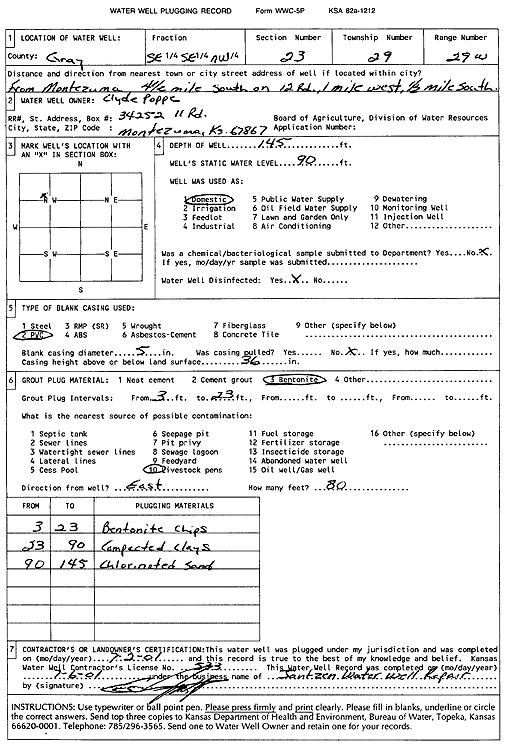 WATER WELL PLUGGING RECORD Form WWC-5P KSA 82a-1212
1 LOCATION OF WATER WELL: Fraction Section Number Township Number Range Number
County: Gray SE 1/4 SE 1/4 NW 1/4 23 29 29 W
Distance and direction from nearest town or city street address of well if located within city?
from Montezuma, 4 1/2 mile South on 12 Rd, 1 mile west, 1/2 mile South.
2 WATER WELL OWNER: Clyde Poppe
RR#, St. Address, Box #: 34252 11 Rd. Board of Agriculture, Division of Water Resources
City, State, ZIP Code : Montezuma, Ks. 67867 Application Number:
3 MARK WELL'S LOCATION WITH AN "X" IN SECTION BOX:
N
N W N E
W E
S W S E
S
4 DEPTH OF WELL.....145......ft.
WELL'S STATIC WATER LEVEL..90....ft.
WELL WAS USED AS:
1 Domestic 5 Public Water Supply 9 Dewatering
2 Irrigation 6 Oil Field Water Supply 10 Monitoring Well
3 Feedlot 7 Lawn and Garden Only 11 Injection Well
4 Industrial 8 Air Conditioning 12 Other...........
Was a chemical/bacteriological sample submitted to Department? Yes....No.X.
If yes, mo/day/yr sample was submitted................
Water Well Disinfected: Yes..X.. No......
5 TYPE OF BLANK CASING USED:
1 Steel 3 RMP (SR) 5 Wrought 7 Fiberglass 9 Other (specify below)
2 PVC 4 ABS 6 Asbestos-Cement 8 Concrete Tile ....................
Blank casing diameter.....5.....in. Was casing pulled? Yes...... No.X.. If yes, how much...........
Casing height above or below land surface......36......in.
6 GROUT PLUG MATERIAL: 1 Neat cement 2 Cement grout 3 Bentonite 4 Other...........
Grout Plug Intervals: From..3..ft. to..23.ft., From.....ft. to .....ft., From...... to......ft.
What is the nearest source of possible contamination:
1 Septic tank 6 Seepage pit 11 Fuel storage 16 Other (specify below)
2 Sewer lines 7 Pit privy 12 Fertilizer storage ....................
3 Watertight sewer lines 8 Sewage lagoon 13 Insecticide storage
4 Lateral lines 9 Feedyard 14 Abandoned water well
5 Cess Pool 10 Livestock pens 15 Oil well/Gas well
Direction from well? ..East.... How many feet? ..80......
FROM TO PLUGGING MATERIALS
3 23 Bentonite Chips
23 90 Compacted Clays
90 145 Chlorinated Sand
7 CONTRACTOR'S OR LANDOWNER'S CERTIFICATION: This water well was plugged under my jurisdiction and was completed
on (mo/day/year)....7-2-01......and this record is true to the best of my knowledge and belief. Kansas
Water Well Contractor's License No. ..533.......... This Water Well Record was completed on (mo/day/year)
..7-6-01........under the business name of ..Jantzen Water Well Repair
by (signature)
INSTRUCTIONS: Use typewriter or ball point pen. Please press firmly and print clearly. Please fill in blanks, underline or circle
the correct answers. Send top three copies to Kansas Department of Health and Environment, Bureau of Water, Topeka, Kansas
66620-0001. Telephone: 785/296-3565. Send one to Water Well Owner and retain one for your records.